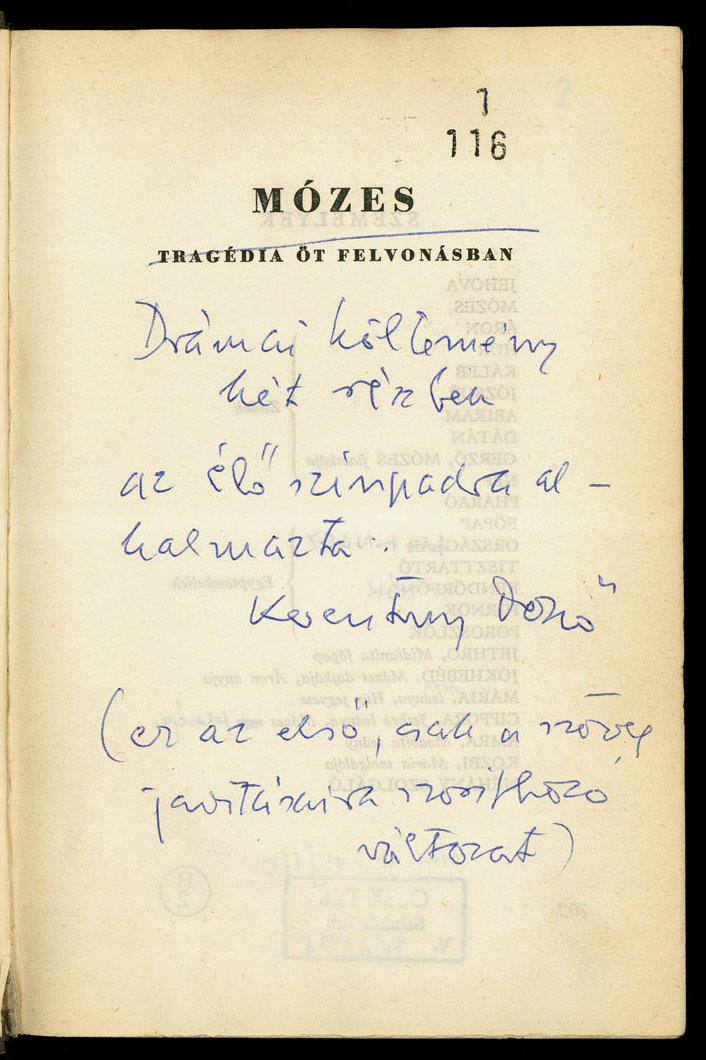 1
116
MÓZES
TRAGÉDIA ÖT FELVONÁSBAN
Drámai költemény
két részben
az élő szinpadra al-
kalmazta:
Keresztury Dezső
(ez az első, csak a szöveg
javításaira szorítkozó
változat)